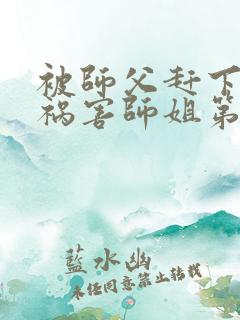 被師父赶下
祸害師姐第
藍水幽
未经同意禁止转载